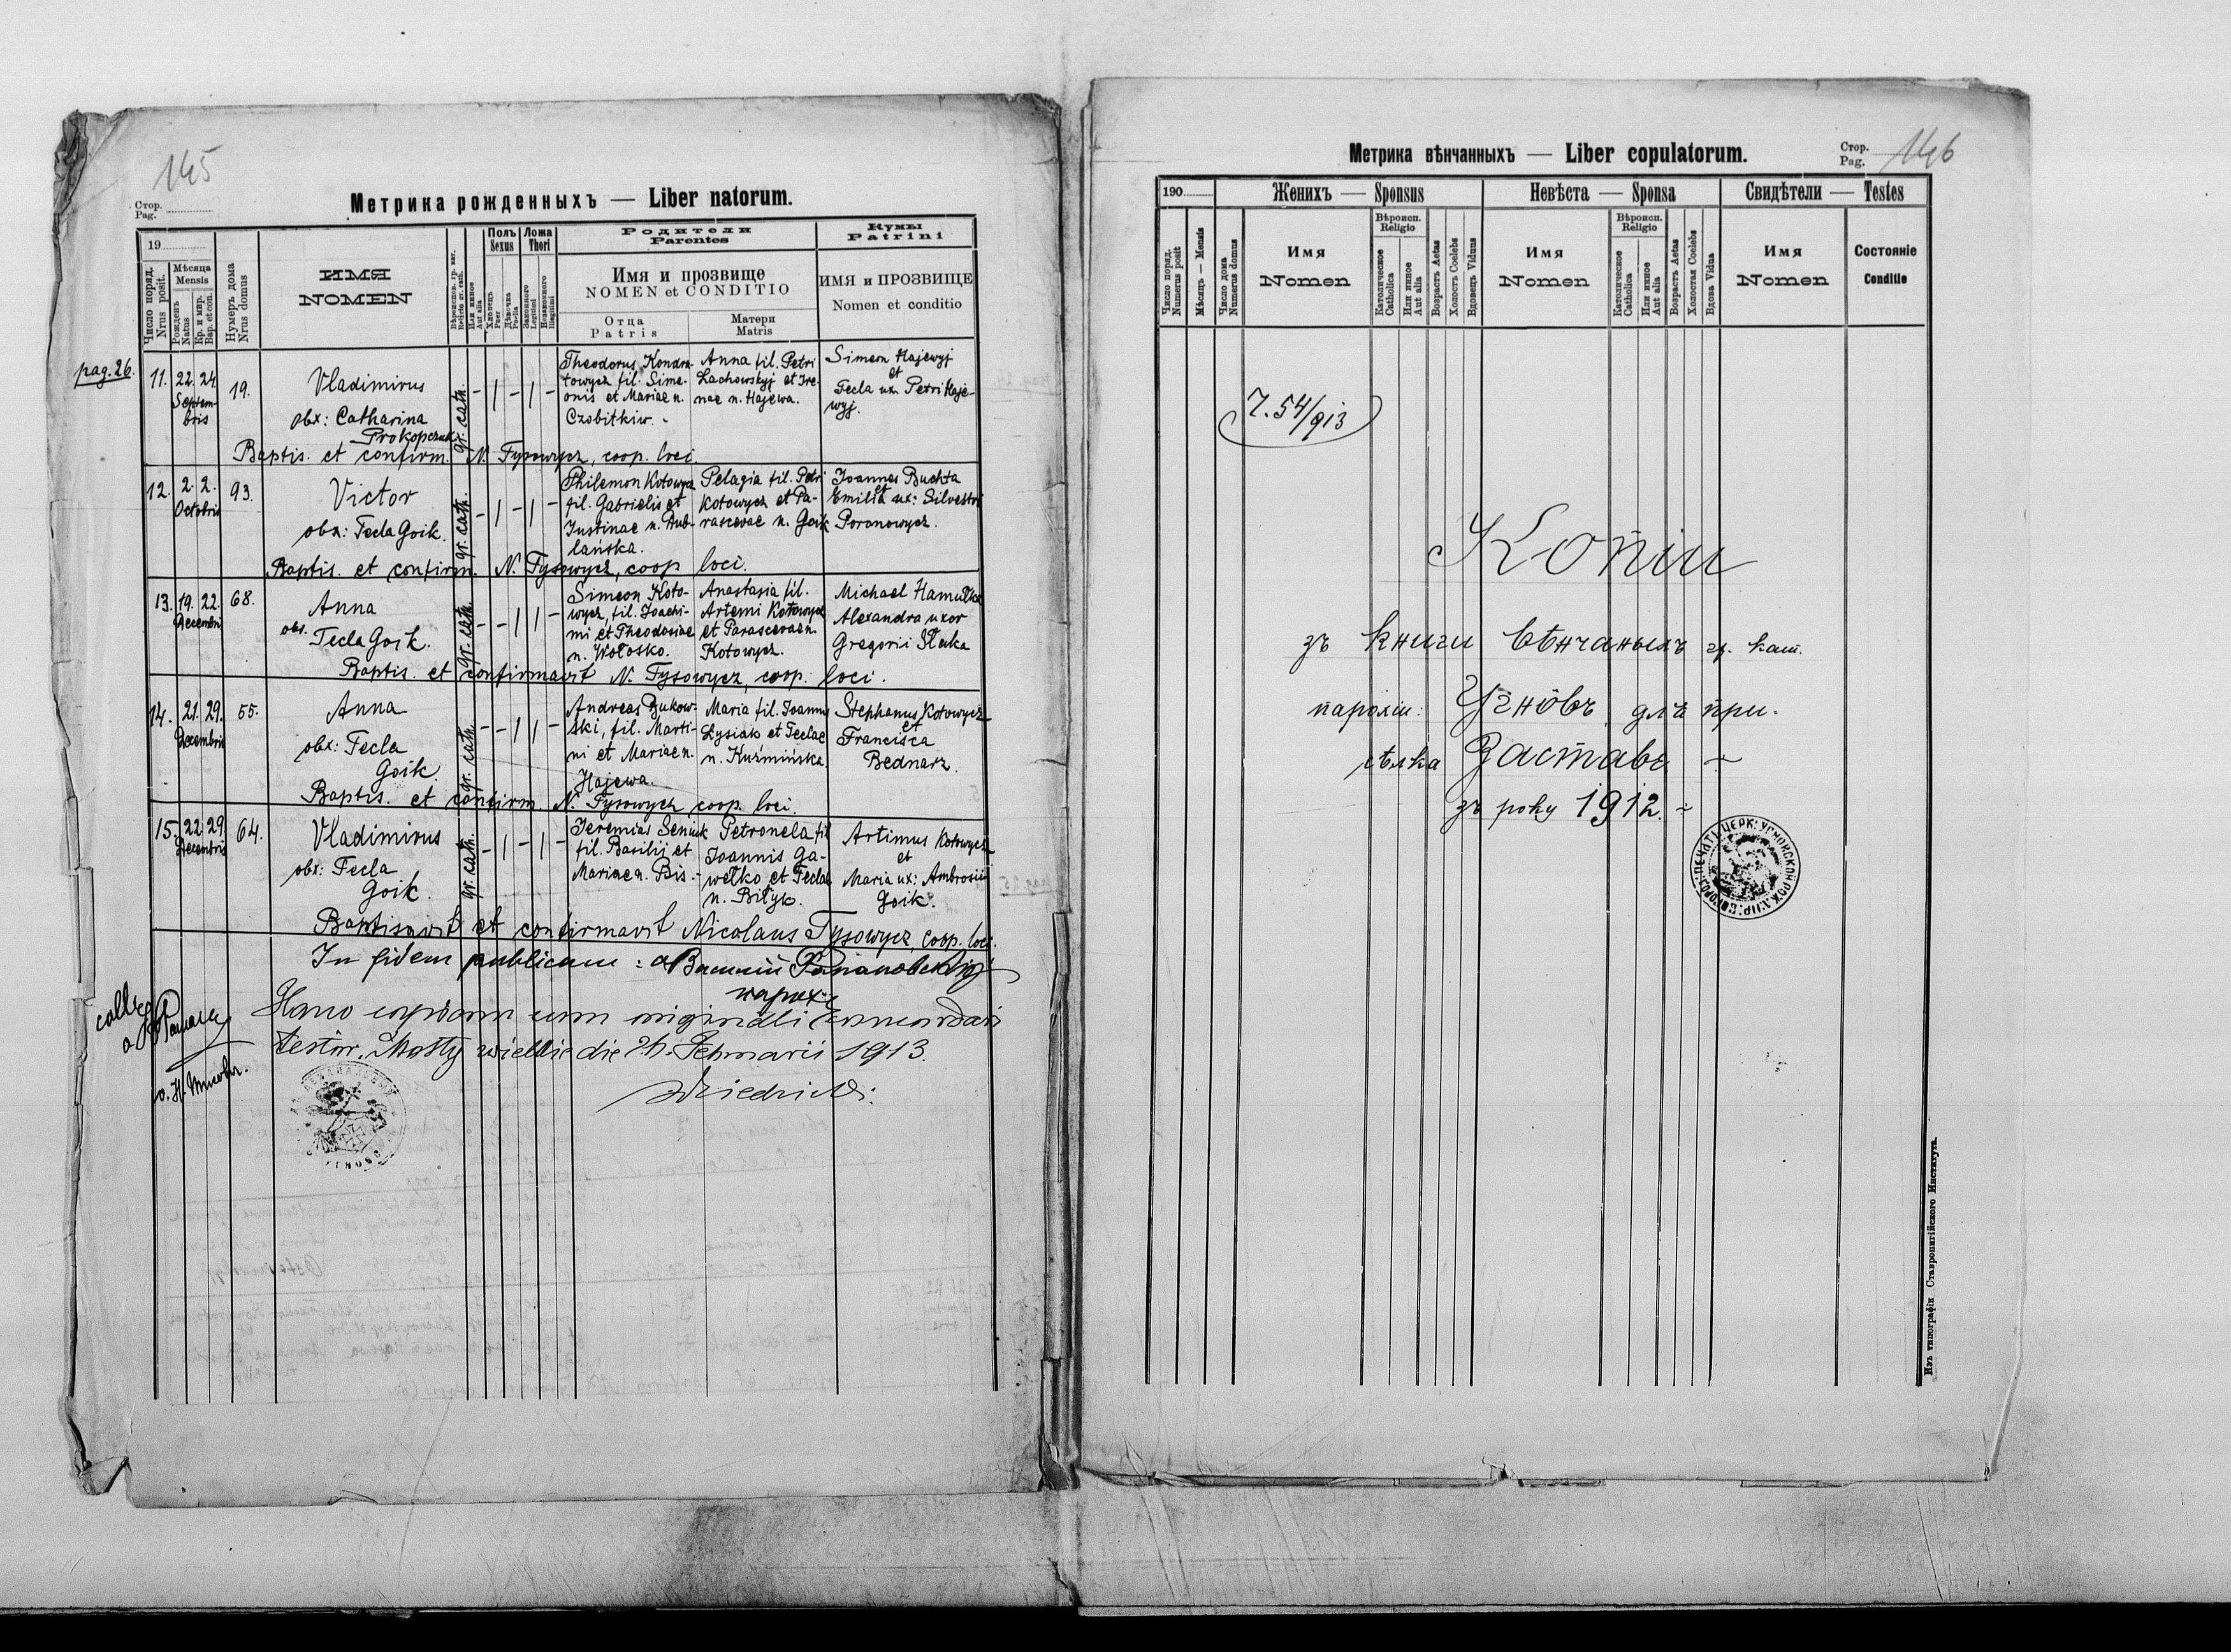 145
Стор.
Pag.
Метрика рожденныхъ — Liber natorum.
19
Число поряд.
Nrus posit.
Мѣсяца
Mensis
Рожденъ
Natus
Кр. и мир.
Bap. et con.
Нумеръ дома
Nrus domus
ИМЯ
NOMEN
Или инное
Aut alia
Полъ
Sexus
Хлопецъ
Puer
Дѣвочка
Puella
Ложа
Thori
Законного
Legitimi
Незаконного
Illegitimi
Родители
Parentes
Имя и прозвище
NOMEN et CONDITIO
Отца
Patris
Матери
Matris
Кумы
Patrini
ИМЯ и ПРОЗВИЩЕ
Nomen et conditio
pag. 26.
11.
22. 24.
Septem-
bris
19.
Vladimirus
obx: Catharina
Prokopczuk
gr. cath.
- | - | -
Theodorus Kondra-
towycz fil. Sime-
onis et Mariae n.
Czobitkiw.
Anna fil. Petri
Lachowskyj et Ire-
nae n. Hajewa.
Simeon Hajewyj
et
Tecla ux. Petri Haje-
wyj.
Baptis. et confirm. N. Tysowycz, coop. loci.
12.
2. 2.
Octobris
93.
Victor
obx: Tecla Goik.
gr. cath.
- | - | -
Philemon Kotowycz
fil. Gabrielis et
Justinae n. Dub-
lańska.
Pelagia fil. Petri
Kotowycz et Pa-
rascevae n. Goik
Joannes Buchta
et
Emilia ux: Silvestri
Poronowycz.
Baptis. et confirm. N. Tysowycz, coop loci.
13.
19. 22.
Decembris
68.
Anna
obs.
Tecla Goik.
gr. cath.
- - | | -
Simeon Koto-
wycz, fil. Joachi-
mi et Theodosiae
n. Wołosko.
Anastasia fil.
Artemi Kotowycz
et Parascevae n.
Kotowycz.
Michael Hamułka
Alexandra uxor
Gregorii Słuka
Baptis. et confirmavit N. Tysowycz, coop. loci.
14.
21. 29.
Decembris
55.
Anna
obx: Tecla
Goik.
gr. cath.
- - | | -
Andreas Bukow-
ski, fil. Marti-
ni et Mariae n.
Hajewa.
Maria fil. Joannis
Łysiak et Teclae
n. Kuźmińska.
Stephanus Kotowycz
et
Francisca
Bednarz.
Baptis. et confirm N. Tysowycz coop. loci.
15.
22. 29.
Decembris
64.
Vladimirus
obx: Tecla
Goik.
gr. cath.
- | - | -
Jeremias Seniuk
fil. Basilii et
Mariae n. Bis.-
Petronela fil
Joannis Ga-
wełko et Teclae
n. Biłyk.
Artimus Kotowycz
et
Maria ux: Ambrosii
Goik.
Baptisavit et confirmavit Nicolaus Tysowycz, coop. loci.
In fidem publicam:
парох
Hanc copiam cum originali concordare
testor. Mosty wielkie die Februarii 1913.
Метрика вѣнчанныхъ — Liber copulatorum.
Стор.
Pag.
146
190
Число поряд.
Numerus posit
Мѣсяць — Mensis
Число дома
Numerus domus
Женихъ — Sponsus
Имя
Nomen
Вѣроисп.
Religio
Католическое
Catholica
Или инное
Aut alia
Возрасть Aetas
Холостъ Coelebs
Вдовецъ Viduus
Невѣста — Sponsa
Имя
Nomen
Вѣроисп.
Religio
Католическое
Catholica
Или инное
Aut alia
Возрасть Aetas
Холостая Coelebs
Вдова Vidua
Свидѣтели — Testes
Имя
Nomen
Состояніе
Conditio
54/913
Копіи
зъ книги вѣнчаныхъ гр. кат.
парохіи: Угнôвъ для при-
сѣлка Застава
зъ року 1912.
Изъ типографіи Ставропигійского Института.